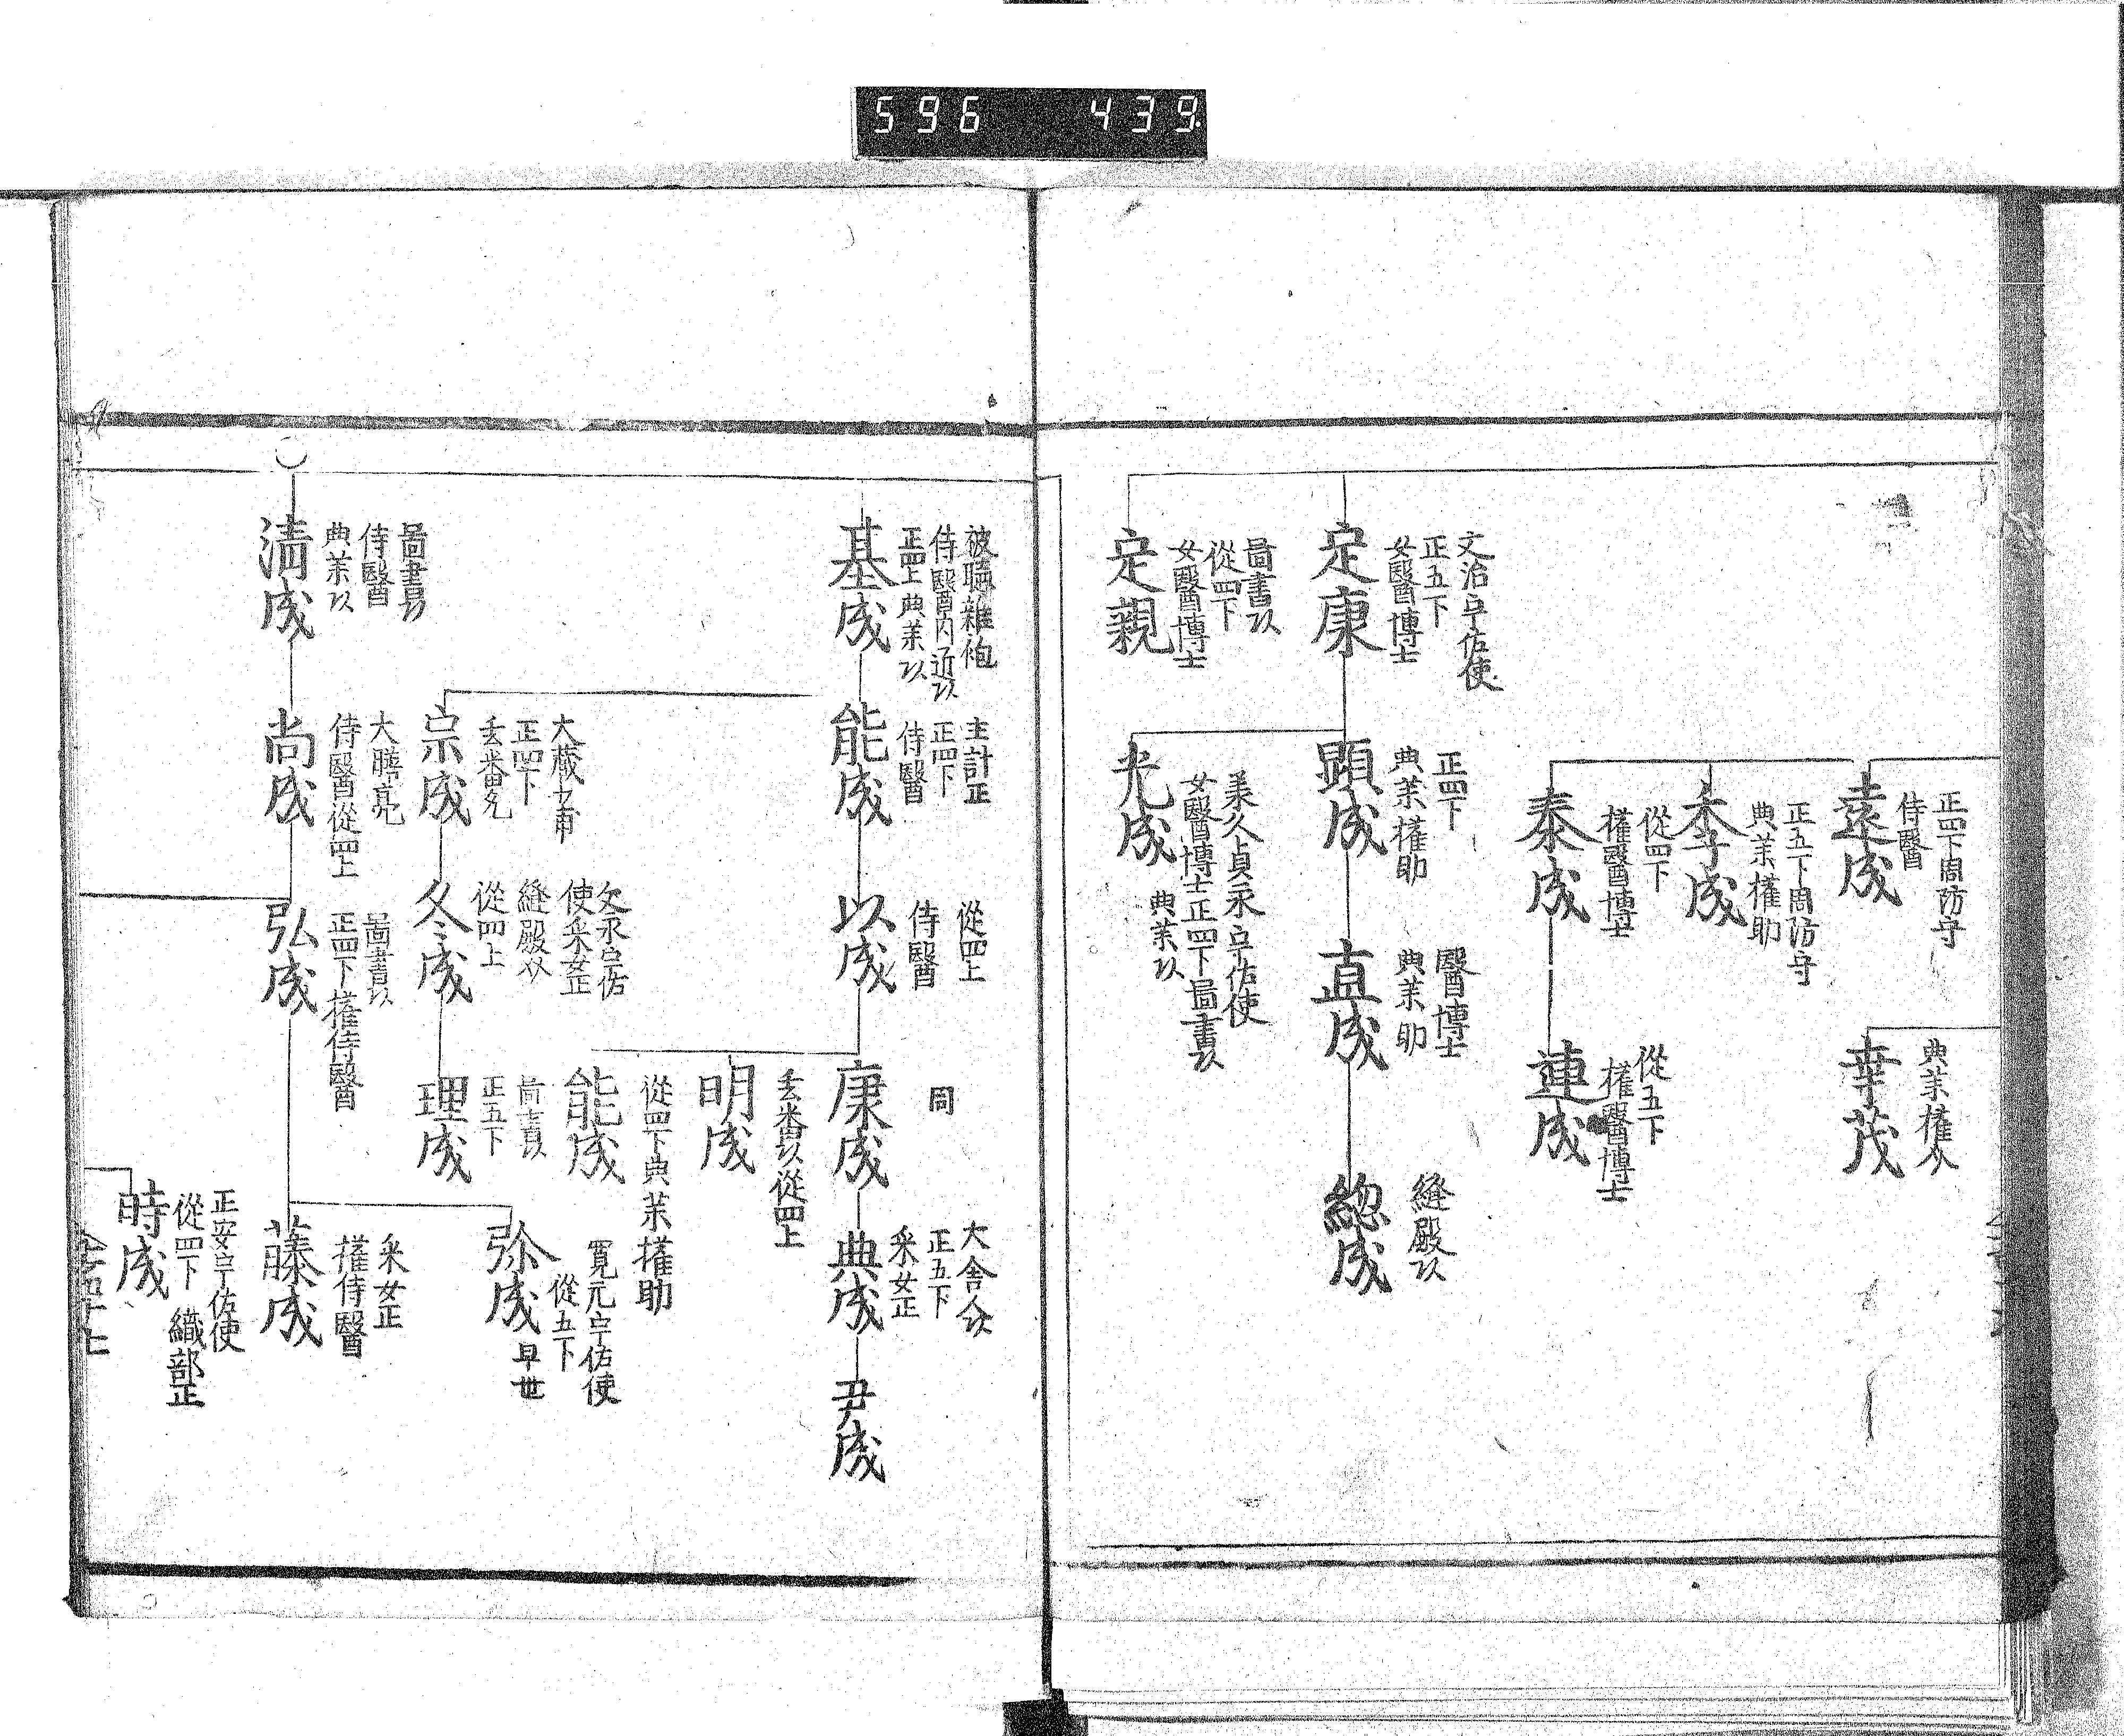 596 439
正四下周防守
侍醫
遠成
典薬権介
幸茂
正五下周防守
典薬権助
季成
從四下
権醫博士
泰成
從五下
権醫博士
連成
文治宇佐使
正五下
女醫博士
定康
正四下
典薬権助
顕成
醫博士
典薬助
直成
縫殿頭
総成
圖書頭
從四下
女醫博士
定親
承久貞永宇佐使
女醫博士正四下圖書頭
典薬頭
光成
被聴雑袍
侍醫内匠頭
正四上典薬頭
基成
主計正
正四下
侍醫
能成
從四上
侍醫
以成
同
康成
大舎人頭
正五下
采女正
典成
尹成
玄蕃頭從四上
明成
從四下典薬権助
能成
大蔵少甫
正四下
玄蕃允
宗成
文永宇佐
使采女正
縫殿頭
從四上
冬成
圖書頭
正五下
理成
圖書頭
侍醫
典薬頭
清成
大膳亮
侍醫從四上
尚成
圖書頭
正四下権侍醫
弘成
寛元宇佐使
從五下
弥成
早世
采女正
権侍醫
藤成
正安宇佐使
從四下 織部正
時成